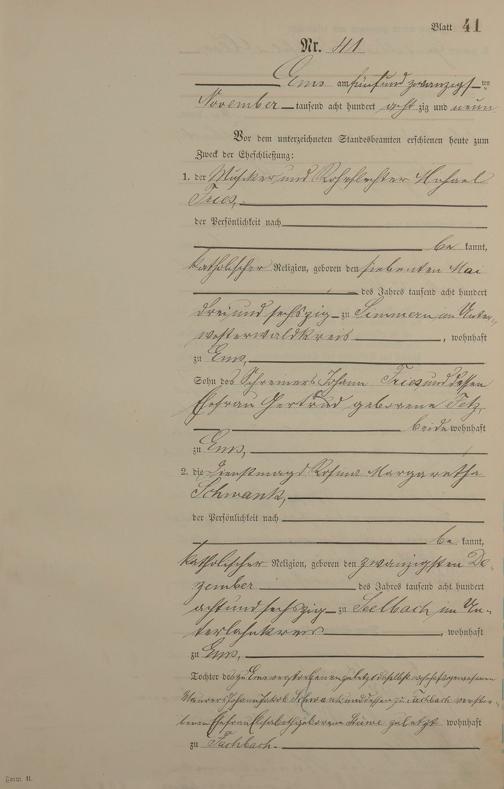 Blatt 41
Nr. 41
Ems am fünfundzwanzigsten
November tausend acht hundert achtzig und neun
Vor dem unterzeichneten Standesbeamten erschienen heute zum
Zweck der Eheschließung:
1. der Musiker und Rohrflechter Michael
Fries,
der Persönlichkeit nach
be kannt,
katholischer Religion, geboren den siebenten Mai
des Jahres tausend acht hundert
dreiundsechszig zu Simmern im Unter-
westerwaldkreis, wohnhaft
zu Ems,
Sohn des Schreiners Johann Fries und dessen
Ehefrau Gertrud geborene
beide wohnhaft
zu Ems,
2. die Dienstmagd Rosina Margaretha
Schwank,
der Persönlichkeit nach
be kannt,
katholischer Religion, geboren den zwanzigsten De-
zember des Jahres tausend acht hundert
achtundsechszig zu Seelbach im Un-
terlahnkreis, wohnhaft
zu Ems,
Tochter des zu Ems verstorbenen zuletzt daselbst
Maurers Johann Jakob Schwank und dessen zu Fachbach verstor-
benen Ehefrau Elisabeth geborenen zuletzt wohnhaft
zu Fachbach.
Form. B.